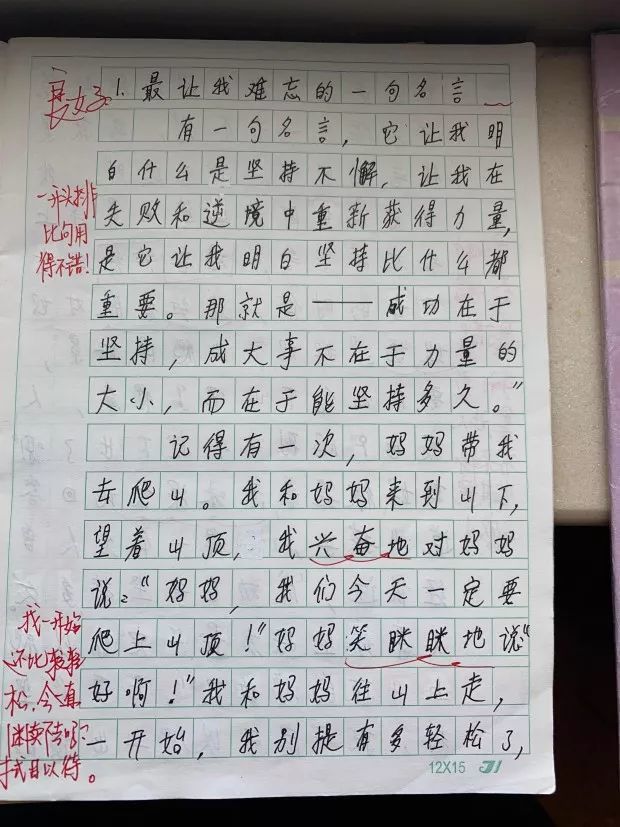 良好
1. 最让我难忘的一句名言
有一句名言，它让我明
白什么是坚持不懈，让我在
失败和逆境中重新获得力量，
是它让我明白坚持比什么都
重要。那就是——成功在于
坚持，成大事不在于力量的
大小，而在于能坚持多久。”
记得有一次，妈妈带我
去爬山。我和妈妈来到山下，
望着山顶，我兴奋地对妈妈
说：“妈妈，我们今天一定要
爬上山顶！”妈妈笑眯眯地说“
好啊！”我和妈妈往山上走，
一开始，我别提有多轻松了，
一开头排
比句用
得不错！
我一开始
还比较轻
松，今真
12X15